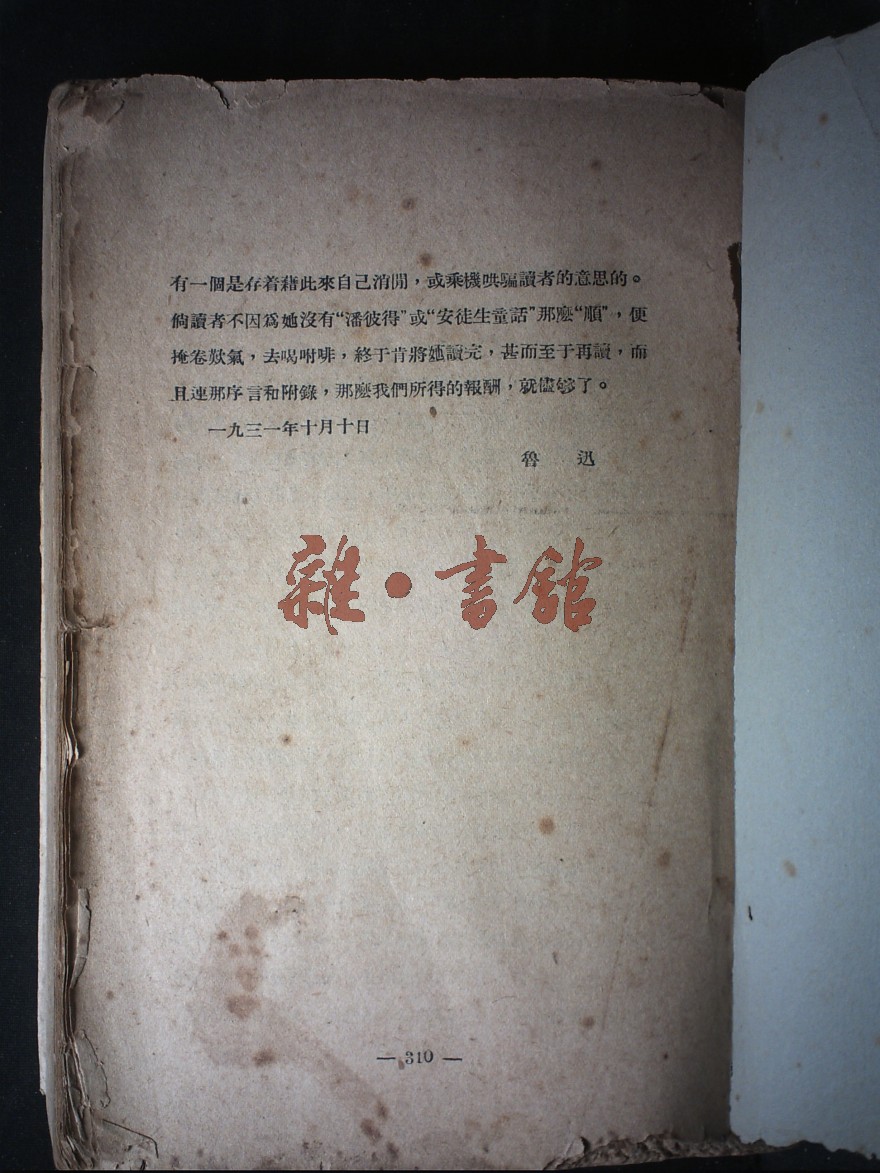 有一個是存着藉此來自己消閒，或乘機哄騙讀者的意思的。
倘讀者不因爲她沒有“潘彼得”或“安徒生童話”那麽“順”，便
掩卷歎氣，去喝咖啡，終于肯將她讀完，甚而至于再讀，而
且連那序言和附錄，那麽我們所得的報酬，就儘够了。
一九三一年十月十日
魯　迅
雜·書館
— 310 —